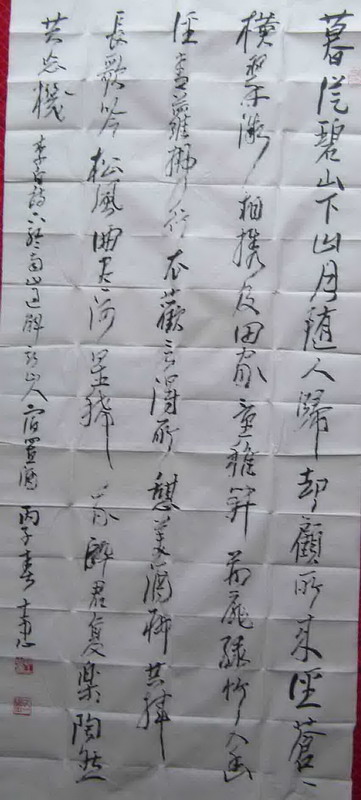 暮從碧山下山月隨人歸却顧所來徑蒼〻
橫翠微相攜及田家童稚開荊扉綠竹入幽
徑青蘿拂行衣歡言得所憩美酒聊共揮
長歌吟松風曲盡河星稀我醉君復樂陶然
共忘機 李白詩下終南山過斛斯山人宿置酒 丙子春